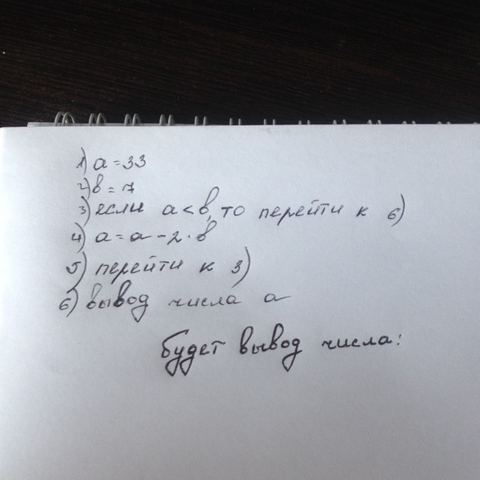 1) a = 33
2) b = 7
3) если a < b, то перейти к 6)
4) a = a - 2 · b
5) перейти к 3)
6) вывод числа a
будет вывод числа: